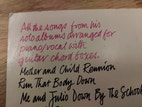 All the songs from his
solo albums arranged for
piano/vocal with
guitar chord boxes.
Mother and Child Reunion
Run That Body Down
Me and Julio Down By The School